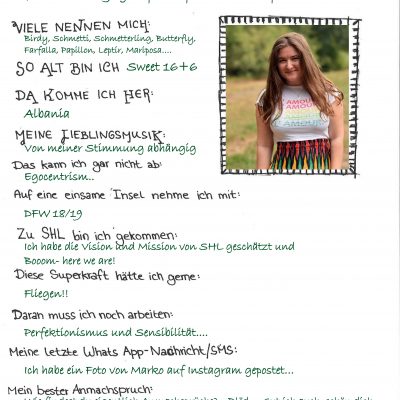 VIELE NENNEN MICH:
Birdy, Schmetti, Schmetterling, Butterfly,
Farfalla, Papillon, Leptir, Mariposa....
SO ALT BIN ICH Sweet 16+6
DA KOMME ICH HER:
Albania
MEINE LIEBLINGSMUSIK:
Von meiner Stimmung abhängig
Das kann ich gar nicht ab:
Egocentrism...
Auf eine einsame Insel nehme ich mit:
DFW 18/19
Zu SHL bin ich gekommen:
Ich habe die Vision und Mission von SHL geschätzt und
Booom- here we are!
Diese Superkraft hätte ich gerne:
Fliegen!!
Daran muss ich noch arbeiten:
Perfektionismus und Sensibilität....
Meine letzte Whats App-Nachricht/SMS:
Ich habe ein Foto von Marko auf Instagram gepostet...
Mein bester Anmachspruch:
AMOUR
AMOUR